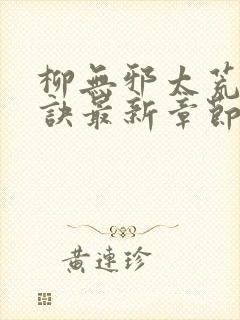 柳無邪太荒
訣最新章節
黃連珍